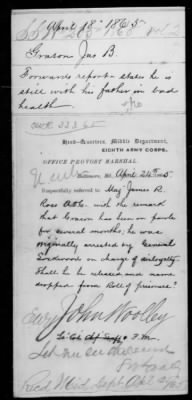 April 18 1865
Grason Jas B.
Forwards report states he
is still with his father in bad
health
Head-Quarters, Middle Department,
EIGHTH ARMY CORPS.
OFFICE PROVOST MARSHAL
Baltimore, Md. April 24th 1865
Respectfully referred to Maj James R.
Ross with the remark
that Grason has been on parole
for several months; he was
originally arrested by General
Lockwood on charge of disloyalty.
Shall he be released and name
dropped from Roll of prisoners?
John Woolley
Let me see the record
Recd Mid Dept Apl 24